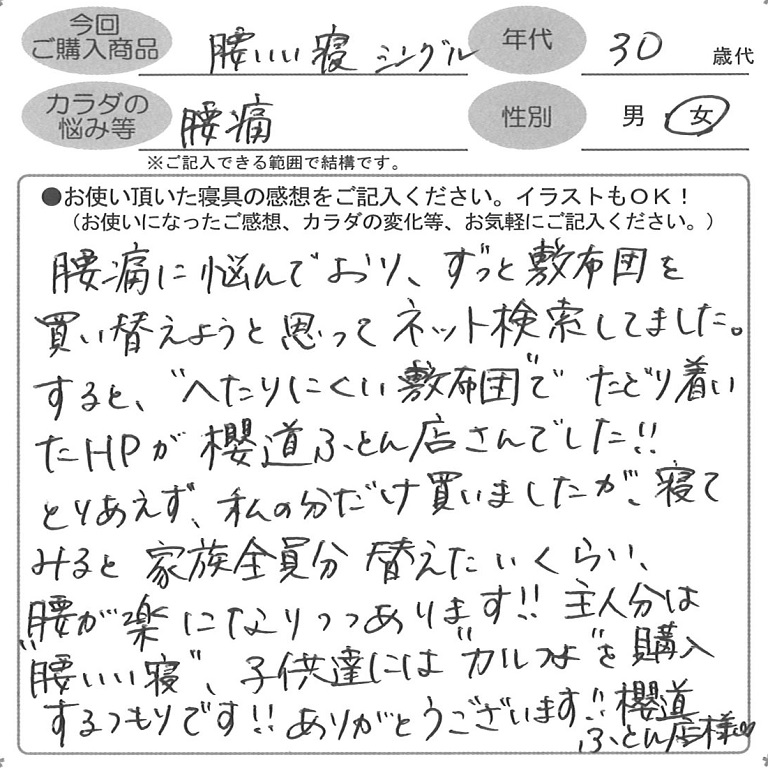 今回
ご購入商品
腰いい寝 シングル
年代
30 歳代
カラダの
悩み等
腰痛
性別
男 女
※ご記入できる範囲で結構です。
●お使い頂いた寝具の感想をご記入ください。イラストもOK！
（お使いになったご感想、カラダの変化等、お気軽にご記入ください。）
腰痛に悩んでおり、ずっと敷布団を
買い替えようと思ってネット検索してました。
すると、"へたりにくい敷布団"でたどり着い
たHPが櫻道ふとん店さんでした!!
とりあえず、私の分だけ買いましたが、寝て
みると家族全員分替えたいくらい、
腰が楽になりつつあります!! 主人分は
"腰いい寝"、子供達には"カルつよ"を購入
するつもりです!! ありがとうございます!! 櫻道
ふとん店様♡